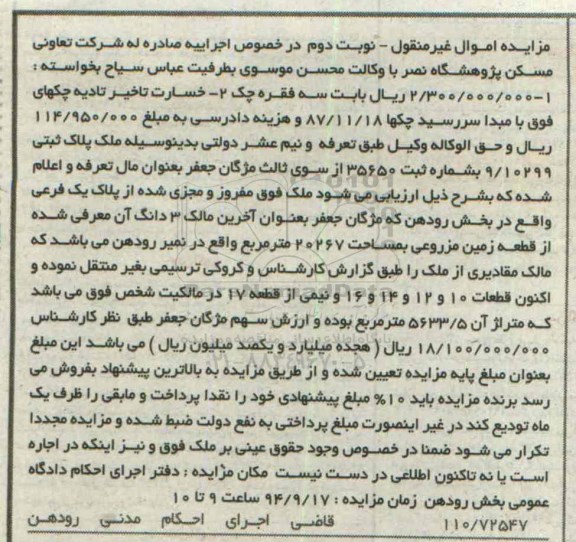 مزایده اموال غیرمنقول - نوبت دوم در خصوص اجراییه صادره له شرکت تعاونی
مسکن پژوهشگاه نصر با وکالت محسن موسوی بطرفیت عباس سیاح بخواسته :
۱-۲/۳۰۰/۰۰۰/۰۰۰ ریال بابت سه فقره چک ۲- خسارت تاخیر تادیه چکهای
فوق با مبدا سررسید چکها ۸۷/۱۱/۱۸ و هزینه دادرسی به مبلغ ۱۱۴/۹۵۰/۰۰۰
ریال و حق الوکاله وکیل طبق تعرفه و نیم عشر دولتی بدینوسیله ملک پلاک ثبتی
۹/۱۰۲۹۹ بشماره ثبت ۳۵۶۵۰ از سوی ثالث مژگان جعفر بعنوان مال تعرفه و اعلام
شده که بشرح ذیل ارزیابی می شود ملک فوق مفروز و مجزی شده از پلاک یک فرعی
واقع در بخش رودهن که مژگان جعفر بعنوان آخرین مالک ۳ دانگ آن معرفی شده
از قطعه زمین مزروعی بمساحت ۲۰۲۶۷ مترمربع واقع در نمیر رودهن می باشد که
مالک مقادیری از ملک را طبق گزارش کارشناس و کروکی ترسیمی بغیر منتقل نموده و
اکنون قطعات ۱۰ و ۱۲ و ۱۴ و ۱۶ و نیمی از قطعه ۱۷ در مالکیت شخص فوق می باشد
که متراژ آن ۵۶۳۳/۵ مترمربع بوده و ارزش سهم مژگان جعفر طبق نظر کارشناس
۱۸/۱۰۰/۰۰۰/۰۰۰ ریال ( هجده میلیارد و یکصد میلیون ریال ) می باشد این مبلغ
بعنوان مبلغ پایه مزایده تعیین شده و از طریق مزایده به بالاترین پیشنهاد بفروش می
رسد برنده مزایده باید ۱۰% مبلغ پیشنهادی خود را نقدا پرداخت و مابقی را ظرف یک
ماه تودیع کند در غیر اینصورت مبلغ پرداختی به نفع دولت ضبط شده و مزایده مجددا
تکرار می شود ضمنا در خصوص وجود حقوق عینی بر ملک فوق و نیز اینکه در اجاره
است یا نه تاکنون اطلاعی در دست نیست مکان مزایده : دفتر اجرای احکام دادگاه
عمومی بخش رودهن زمان مزایده : ۹۴/۹/۱۷ ساعت ۹ تا ۱۰
۱۱۰/۷۲۵۴۷ قاضی اجرای احکام مدنی رودهن